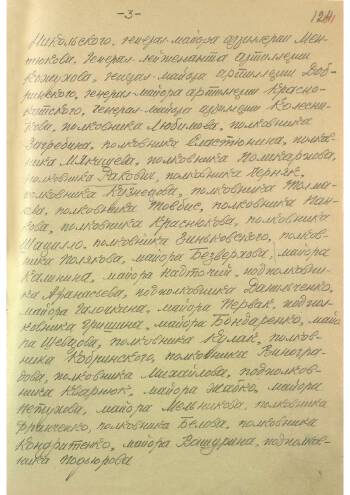 -3-
124
Никольского, генерал-майора артиллерии Мен-
тюкова, генерал-лейтенанта артиллерии
Кожухова, генерал-майора артиллерии Доб-
ринского, генерал-майора артиллерии Красно-
кутского, генерал-майора артиллерии Колесни-
кова, полковника Любимова, полковника
Загребина, полковника Сластюнина, полков-
ника Мякишева, полковника Помикарпова,
полковника Ракович, полковника Черняк,
полковника Кузнецова, полковника Толма-
чёва, полковника Товбис, полковника Нан-
кова, полковника Краснюкова, полковника
Шацилло, полковника Зиньковского, полков-
ника Полякова, майора Безверхова, майора
Калинина, майора Надтокий, подполковни-
ка Афанасьева, подполковника Данильченко,
майора Галочкина, майора Первак, подпол-
ковника Гришина, майора Бондаренко, майо-
ра Шевцова, полковника Кулак, полков-
ника Кобринского, полковника Виногра-
дова, полковника Михайлова, подполков-
ника Кварнюк, майора Жайко, майора
Петухова, майора Мельникова, полковника
Франченко, полковника Белова, полковника
Кондратенко, майора Вашурина, подполков-
ника